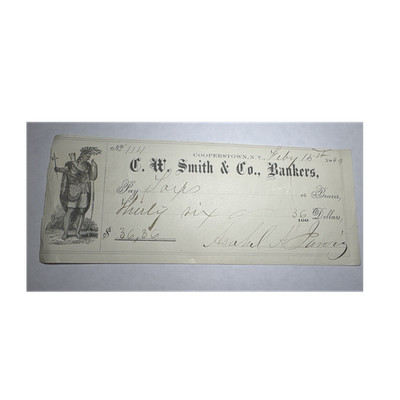 No. 1111
COOPERSTOWN, N.Y., Feby 15th 186
C. W. Smith & Co., Bankers,
Pay or Bearer,
Thirty six 36/100 Dollars,
$ 36,36
Asahel A. Jarvis